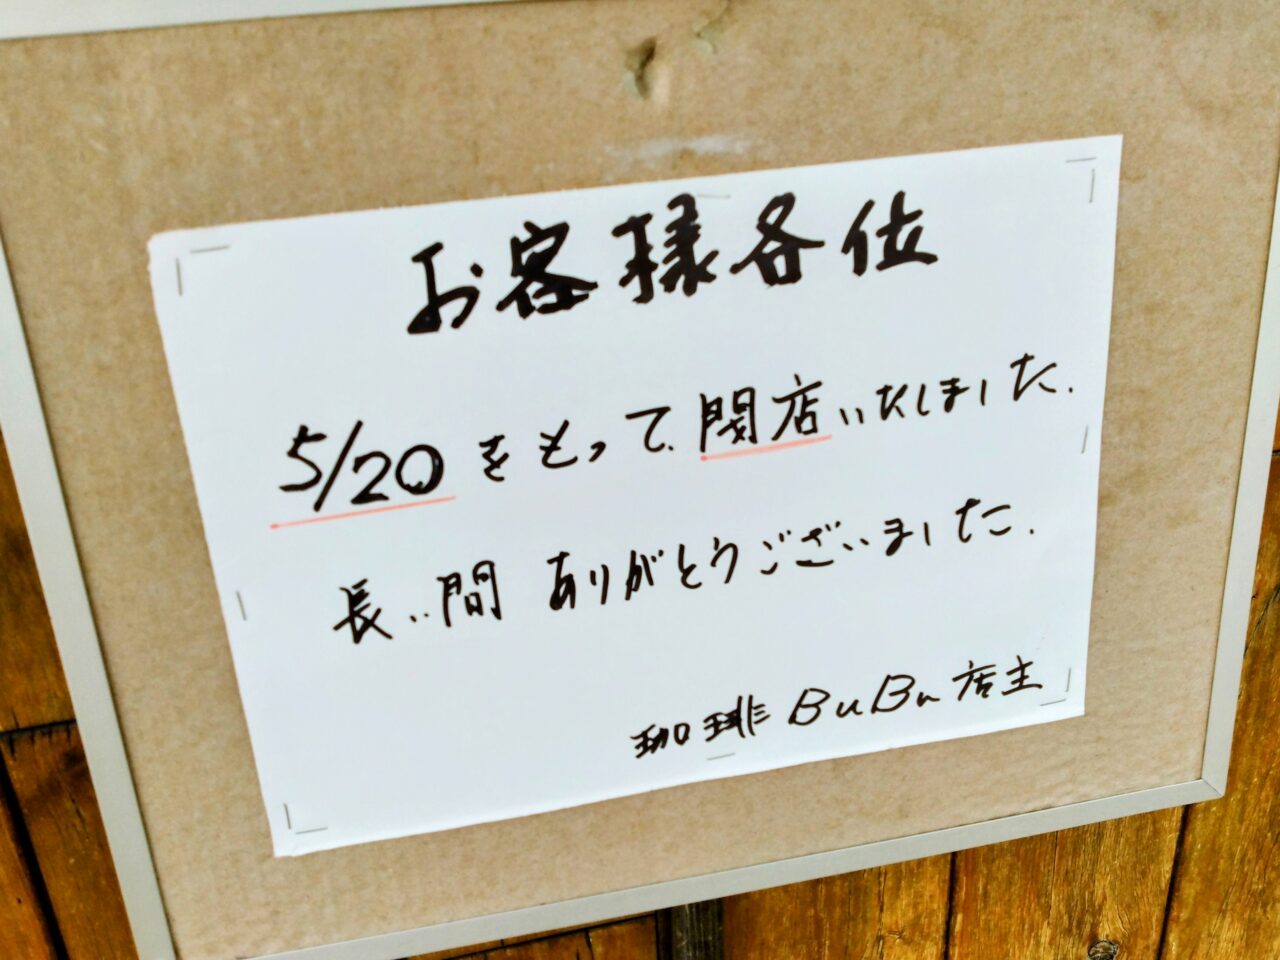 お客様各位
5/20をもって閉店いたしました.
長い間 ありがとうございました.
珈琲 BuBu 店主